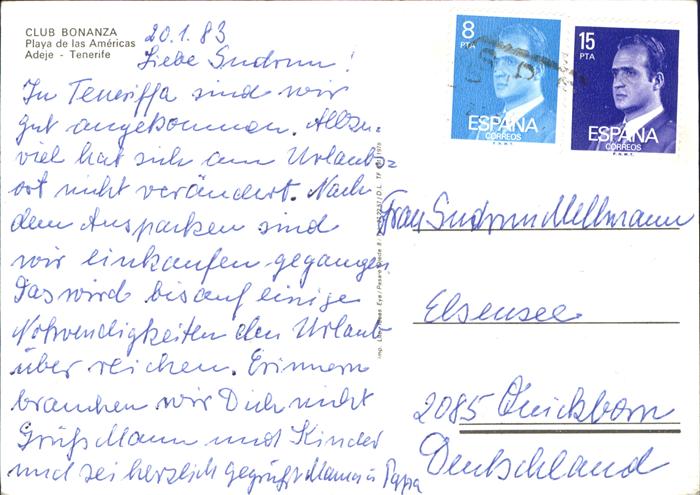 CLUB BONANZA
Playa de las Américas
Adeje - Tenerife
20.1.83
Liebe Gudrun!
In Teneriffa sind wir
gut angekommen. Allzu-
viel hat sich am Urlaubs-
ort nicht verändert. Nach
dem Auspacken sind
wir einkaufen gegangen.
Das wird bis auf einige
Notwendigkeiten den Urlaub
über reichen. Erinnern
brauchen wir Dich nicht
Grüß Mann und Kinder
und sei herzlich gegrüßt Mama u Papa
8
PTA
ESPAÑA
CORREOS
F.N.M.T.
15
PTA
ESPAÑA
CORREOS
F.N.M.T.
Frau Gudrun Mellmann
Elsensee
2085 Quickborn
Deutschland